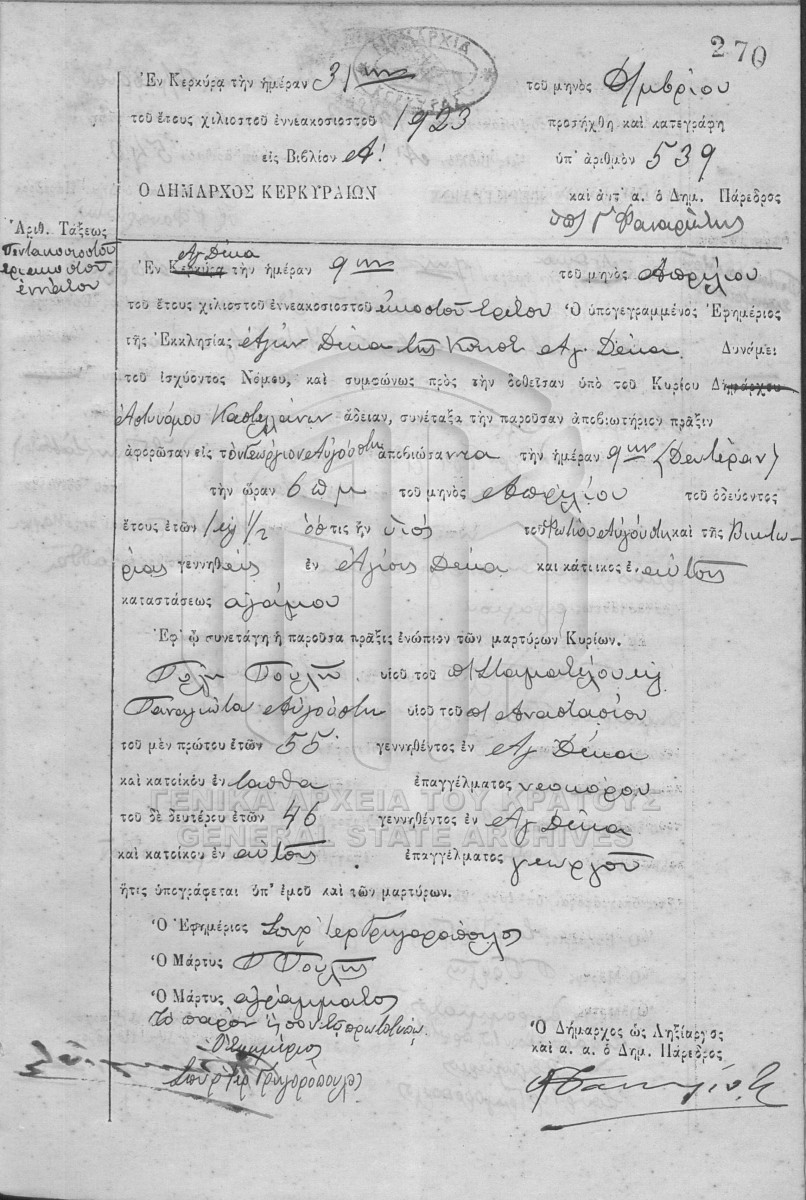 270
Ἐν Κερκύρᾳ τὴν ἡμέραν 31ην τοῦ μηνὸς
τοῦ ἔτους χιλιοστοῦ ἐννεακοσιοστοῦ 1923 προσήχθη καὶ κατεγράφη
εἰς Βιβλίον Α! ὑπ' ἀριθμὸν 539
Ο ΔΗΜΑΡΧΟΣ ΚΕΡΚΥΡΑΙΩΝ καὶ ἀντ' α. ὁ Δημ. Πάρεδρος
Ἀριθ. Τάξεως
Πεντακοσιοστὸν
τριακοστὸν
ἔννατον
Ἁγ Δέκα
Ἐν Κερκύρᾳ τὴν ἡμέραν 9ην τοῦ μηνὸς Ἀπριλίου
τοῦ ἔτους χιλιοστοῦ ἐννεακοσιοστοῦ εἰκοστοῦ τρίτου Ὁ ὑπογεγραμμένος Ἐφημέριος
τῆς Ἐκκλησίας Ἁγίων Δέκα τῆς Κοινότ Ἁγ. Δέκα Δυνάμει
τοῦ ἰσχύοντος Νόμου, καὶ συμφώνως πρὸς τὴν δοθεῖσαν ὑπὸ τοῦ Κυρίου Δημάρχου
Ἀστυνόμου Καστελλάνων ἄδειαν, συνέταξα τὴν παροῦσαν ἀποβιωτήριον πρᾶξιν
ἀφορῶσαν εἰς τὸν Γεώργιον Αὐγούστη ἀποβιώσαντα τὴν ἡμέραν 9ην (Δευτέραν)
τὴν ὥραν 6 π μ τοῦ μηνὸς Ἀπριλίου τοῦ ὁδεύοντος
ἔτους ἐτῶν 1/2 ὅστις ἦν υἱὸς τοῦ Φωτίου Αὐγούστη καὶ τῆς Βικτω-
ρίας γεννηθεὶς ἐν Ἁγίοις Δέκα καὶ κάτοικος ἐν αὐτοῖς
καταστάσεως ἀγάμου
Ἐφ' ᾧ συνετάγη ἡ παροῦσα πρᾶξις ἐνώπιον τῶν μαρτύρων Κυρίων.
Πουλῆ υἱοῦ τοῦ π Σταματέλου
Παναγιώτα Αὐγούστη υἱοῦ τοῦ π Ἀναστασίου
τοῦ μὲν πρώτου ἐτῶν 55 γεννηθέντος ἐν Ἁγ Δέκα
καὶ κατοίκου ἐν ἐπαγγέλματος νεοκόρου
τοῦ δὲ δευτέρου ἐτῶν 46 γεννηθέντος ἐν Ἁγ Δέκα
καὶ κατοίκου ἐν αὐτοῖς ἐπαγγέλματος γεωργοῦ
ἥτις ὑπογράφεται ὑπ' ἐμοῦ καὶ τῶν μαρτύρων.
Ὁ Ἐφημέριος Σπυρ Ἱερ Γρηγορόπουλος
Ὁ Μάρτυς Πουλῆς
Ὁ Μάρτυς ἀγράμματος
Τὸ παρὸν
Ὁ Ἐφημέριος
Σπυρ Ἱερ Γρηγορόπουλος
Ὁ Δήμαρχος ὡς Ληξίαρχος
καὶ α. α. ὁ Δημ. Πάρεδρος
ΓΕΝΙΚΑ ΑΡΧΕΙΑ ΤΟΥ ΚΡΑΤΟΥΣ
GENERAL STATE ARCHIVES